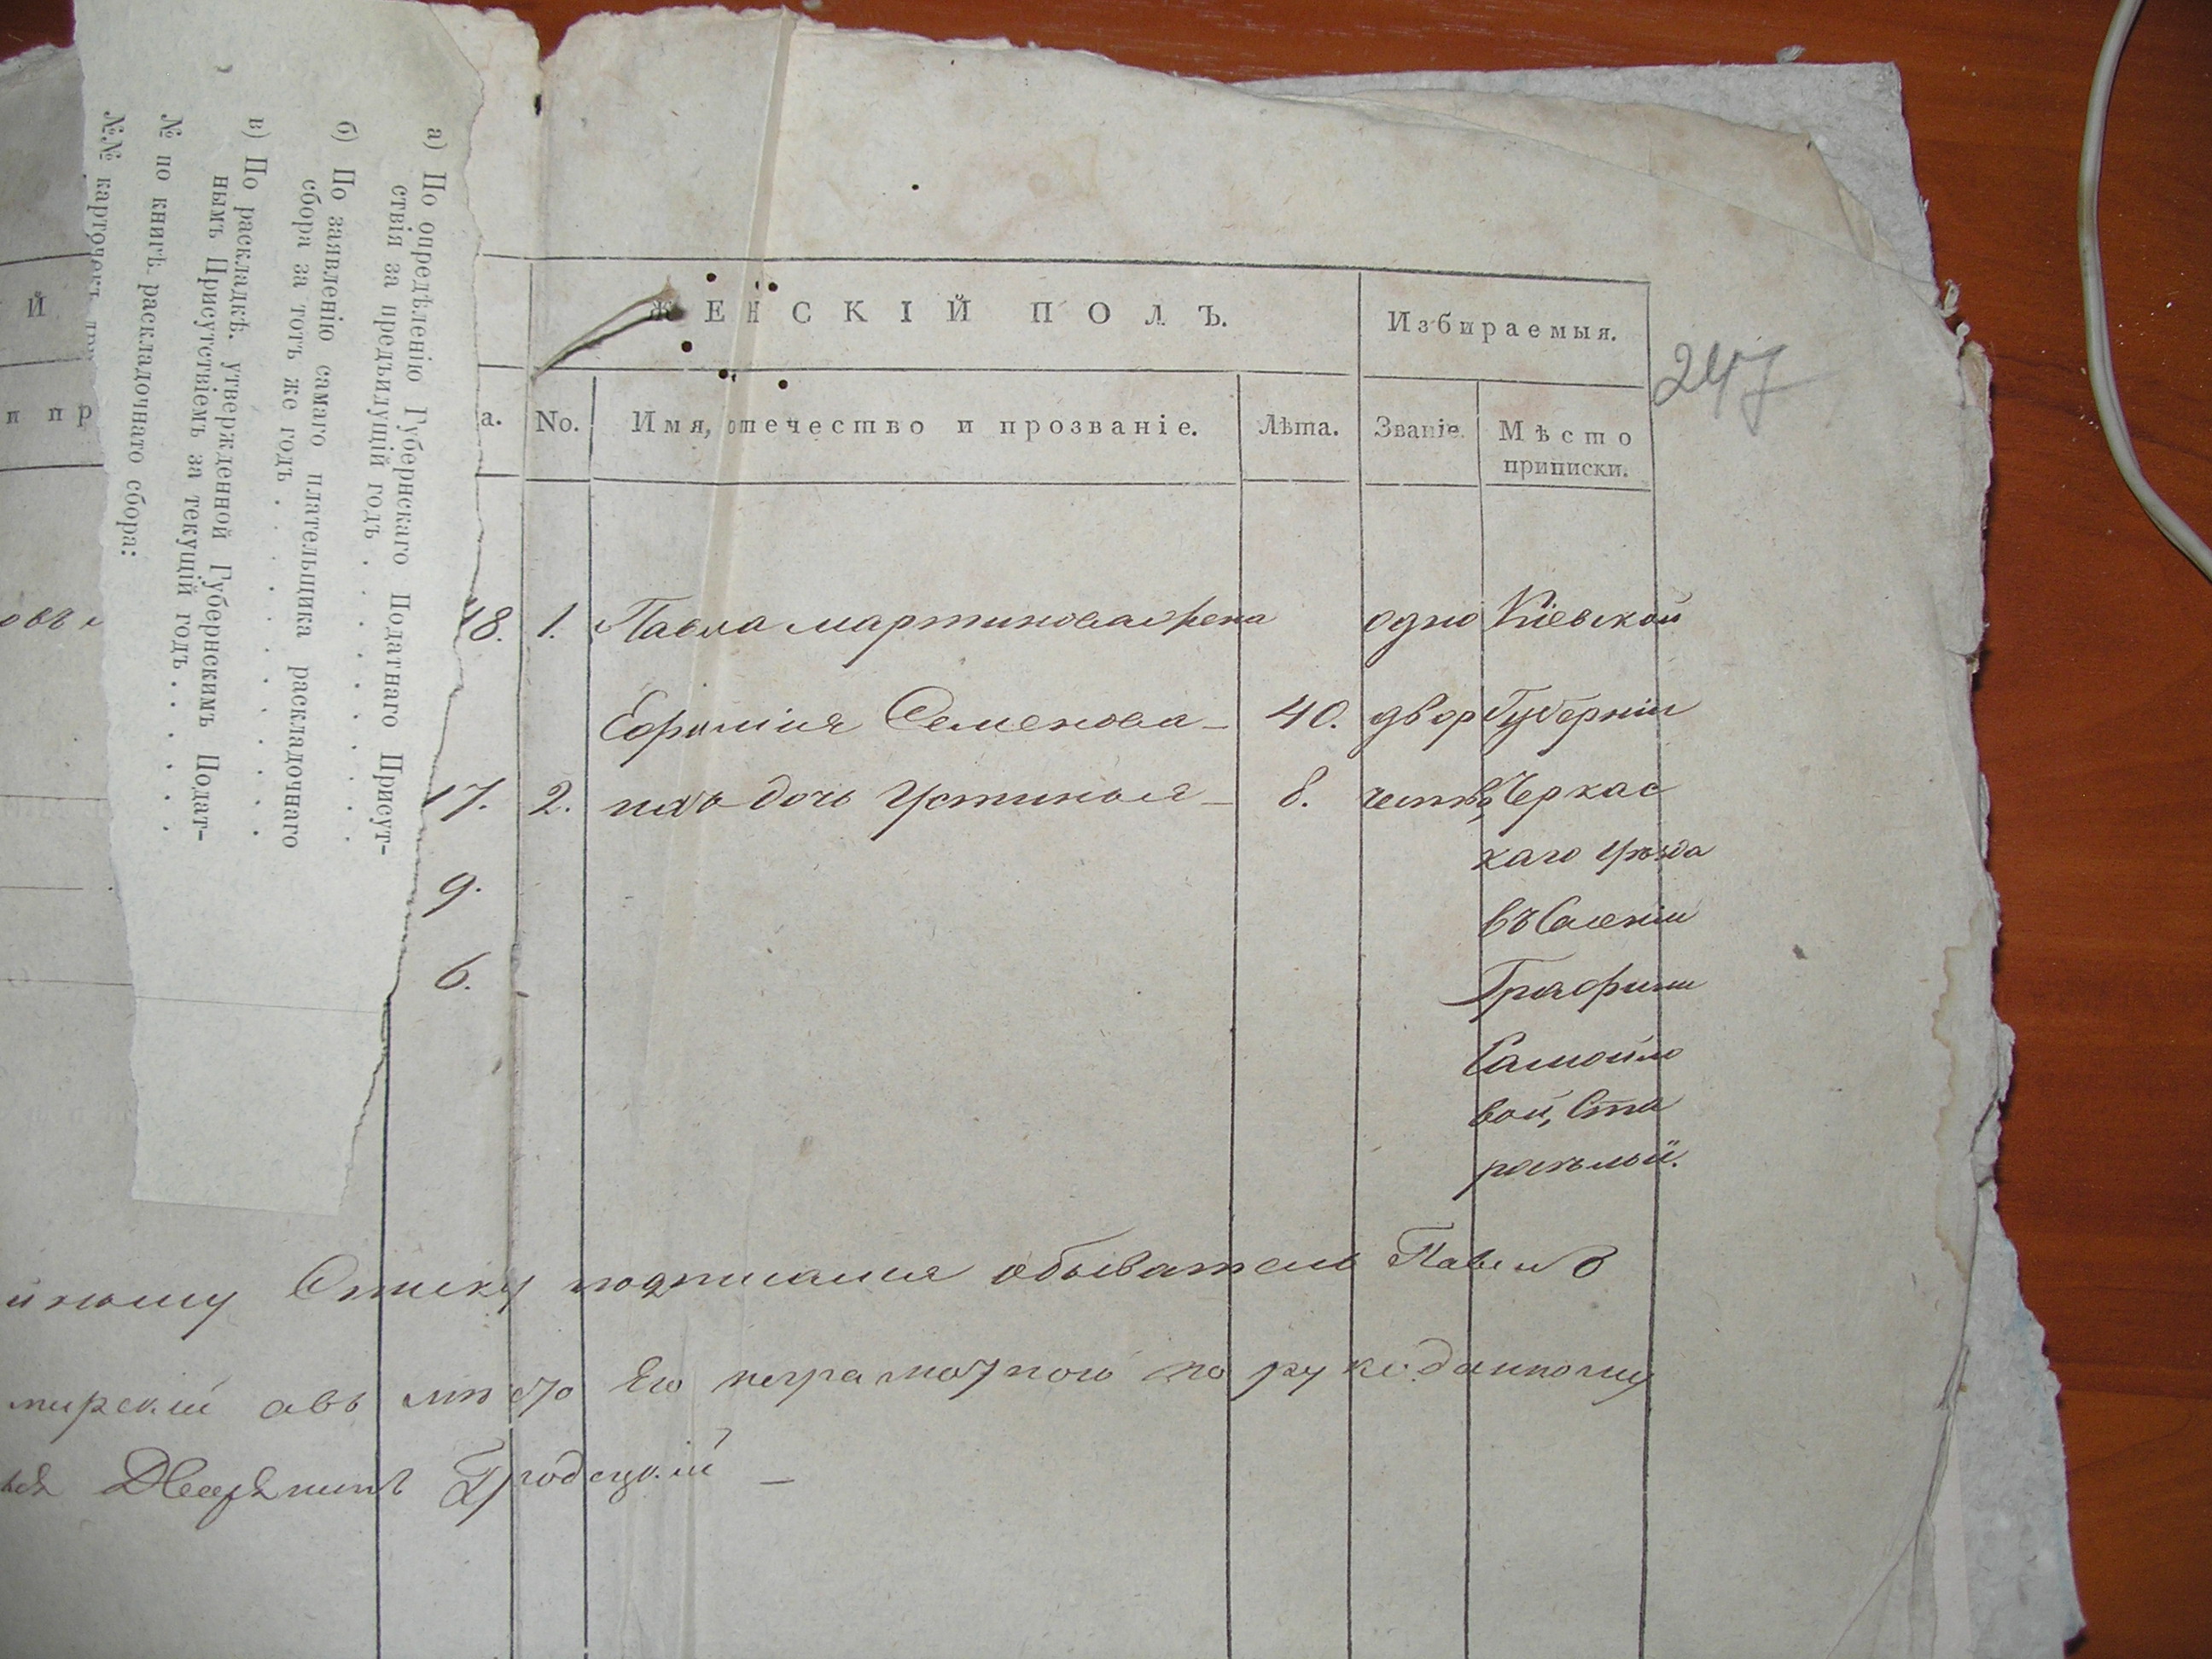 а) По опредѣленію Губернскаго Податнаго Присут-
ствія за предъидущій годъ . . . . . . .
б) По заявленію самаго плательщика раскладочнаго
сбора за тотъ же годъ . . . . . . .
в) По раскладкѣ, утвержденной Губернскимъ Подат-
нымъ Присутствіемъ за текущій годъ . . . .
№ по книгѣ раскладочнаго сбора:
№№ карточекъ
Й
и пр
ЖЕНСКІЙ ПОЛЪ.
Избираемыя.
247
а.
No.
Имя, отечество и прозваніе.
Лѣта.
Званіе.
Мѣсто
приписки.
48. 1. Павла Мартинова жена одно Кіевской
Ефимія Семенова 40. двор Губерніи
17. 2. ихъ дочь Устинья 8. Черкас
9. каго уѣзда
въ Селеніи
6. Графини
Самойло
вой, Ста
Списку подписался обыватель Павелъ
его неграмотного по руке данному
Дворянинъ Гродецкій